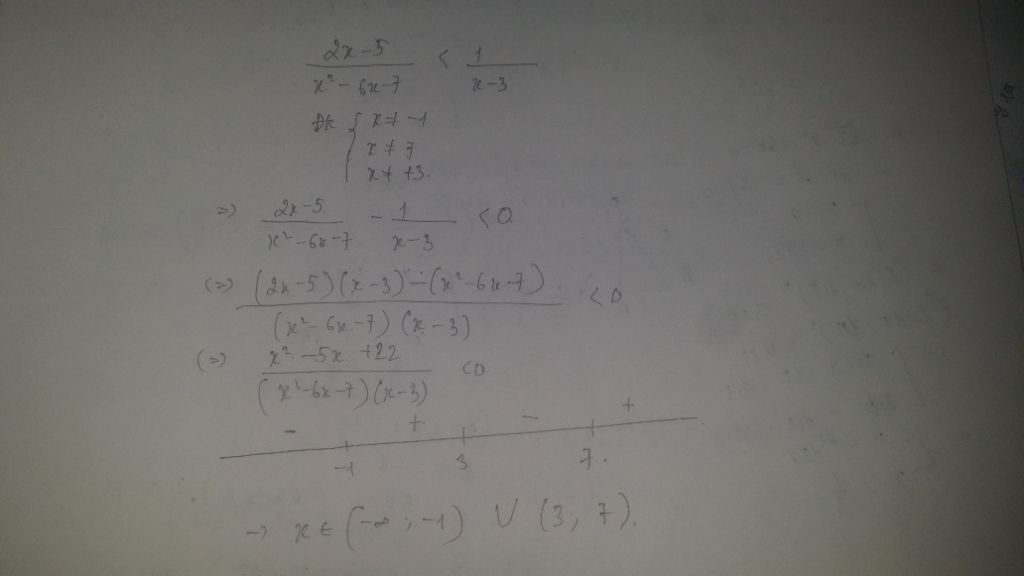 (2x-5)/(x²-6x-7) < 1/(x-3)
Đk { x ≠ -1
x ≠ 7
x ≠ +3.
=) (2x-5)/(x²-6x-7) - 1/(x-3) < 0
(=) ((2x-5)(x-3)-(x²-6x-7))/((x²-6x-7)(x-3)) < 0
(=) (x²-5x+22)/((x²-6x-7)(x-3)) < 0
- + - +
-1 3 7.
-) x ∈ (-∞; -1) ∪ (3; 7).